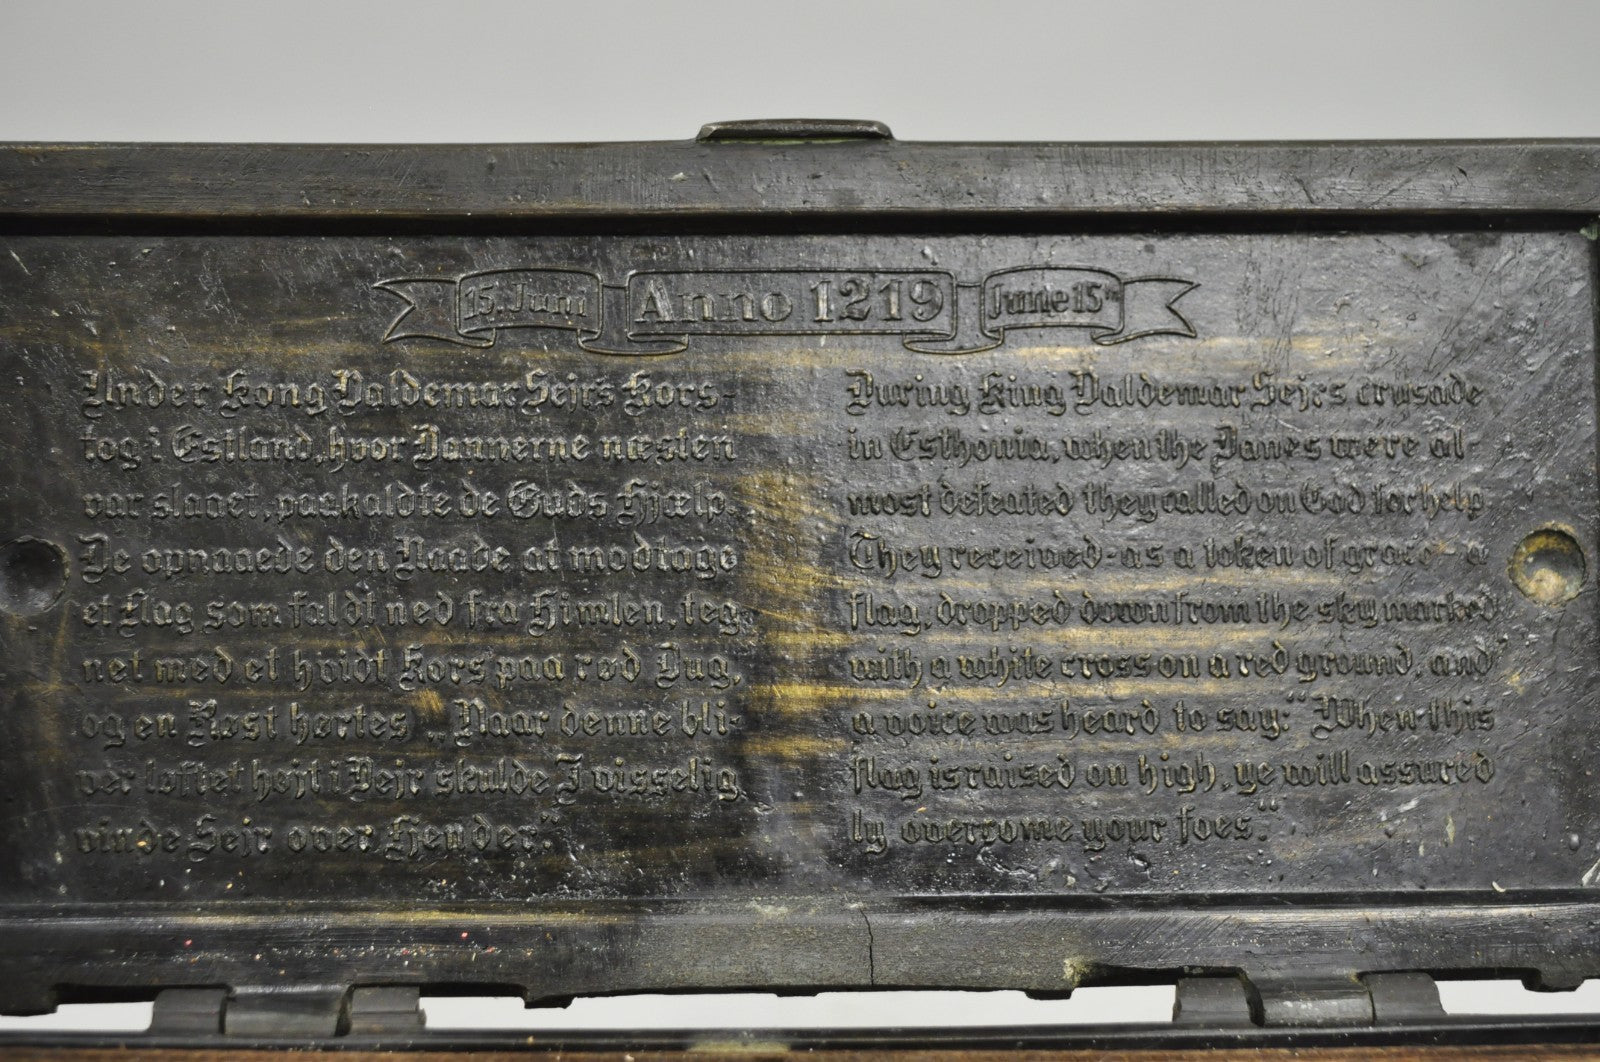 15. Juni Anno 1219 June 15th
Under Kong Valdemar Sejrs Kors-
tog i Estland, hvor Dannerne næsten
var slaaet, paakaldte de Guds Hjælp.
De opnaaede den Naade at modtage
et Flag som faldt ned fra Himlen, teg-
net med et hvidt Kors paa rød Dug,
og en Røst hørtes: „Naar denne bli-
ver løftet højt i Vejr skulde I visselig
vinde Sejr over Fjender."
During King Valdemar Sejrs crusade
in Esthonia, when the Danes were al-
most defeated they called on God for help
They received - as a token of grace - a
flag, dropped down from the sky marked
with a white cross on a red ground, and
a voice was heard to say: "When this
flag is raised on high, ye will assured
ly overcome your foes."